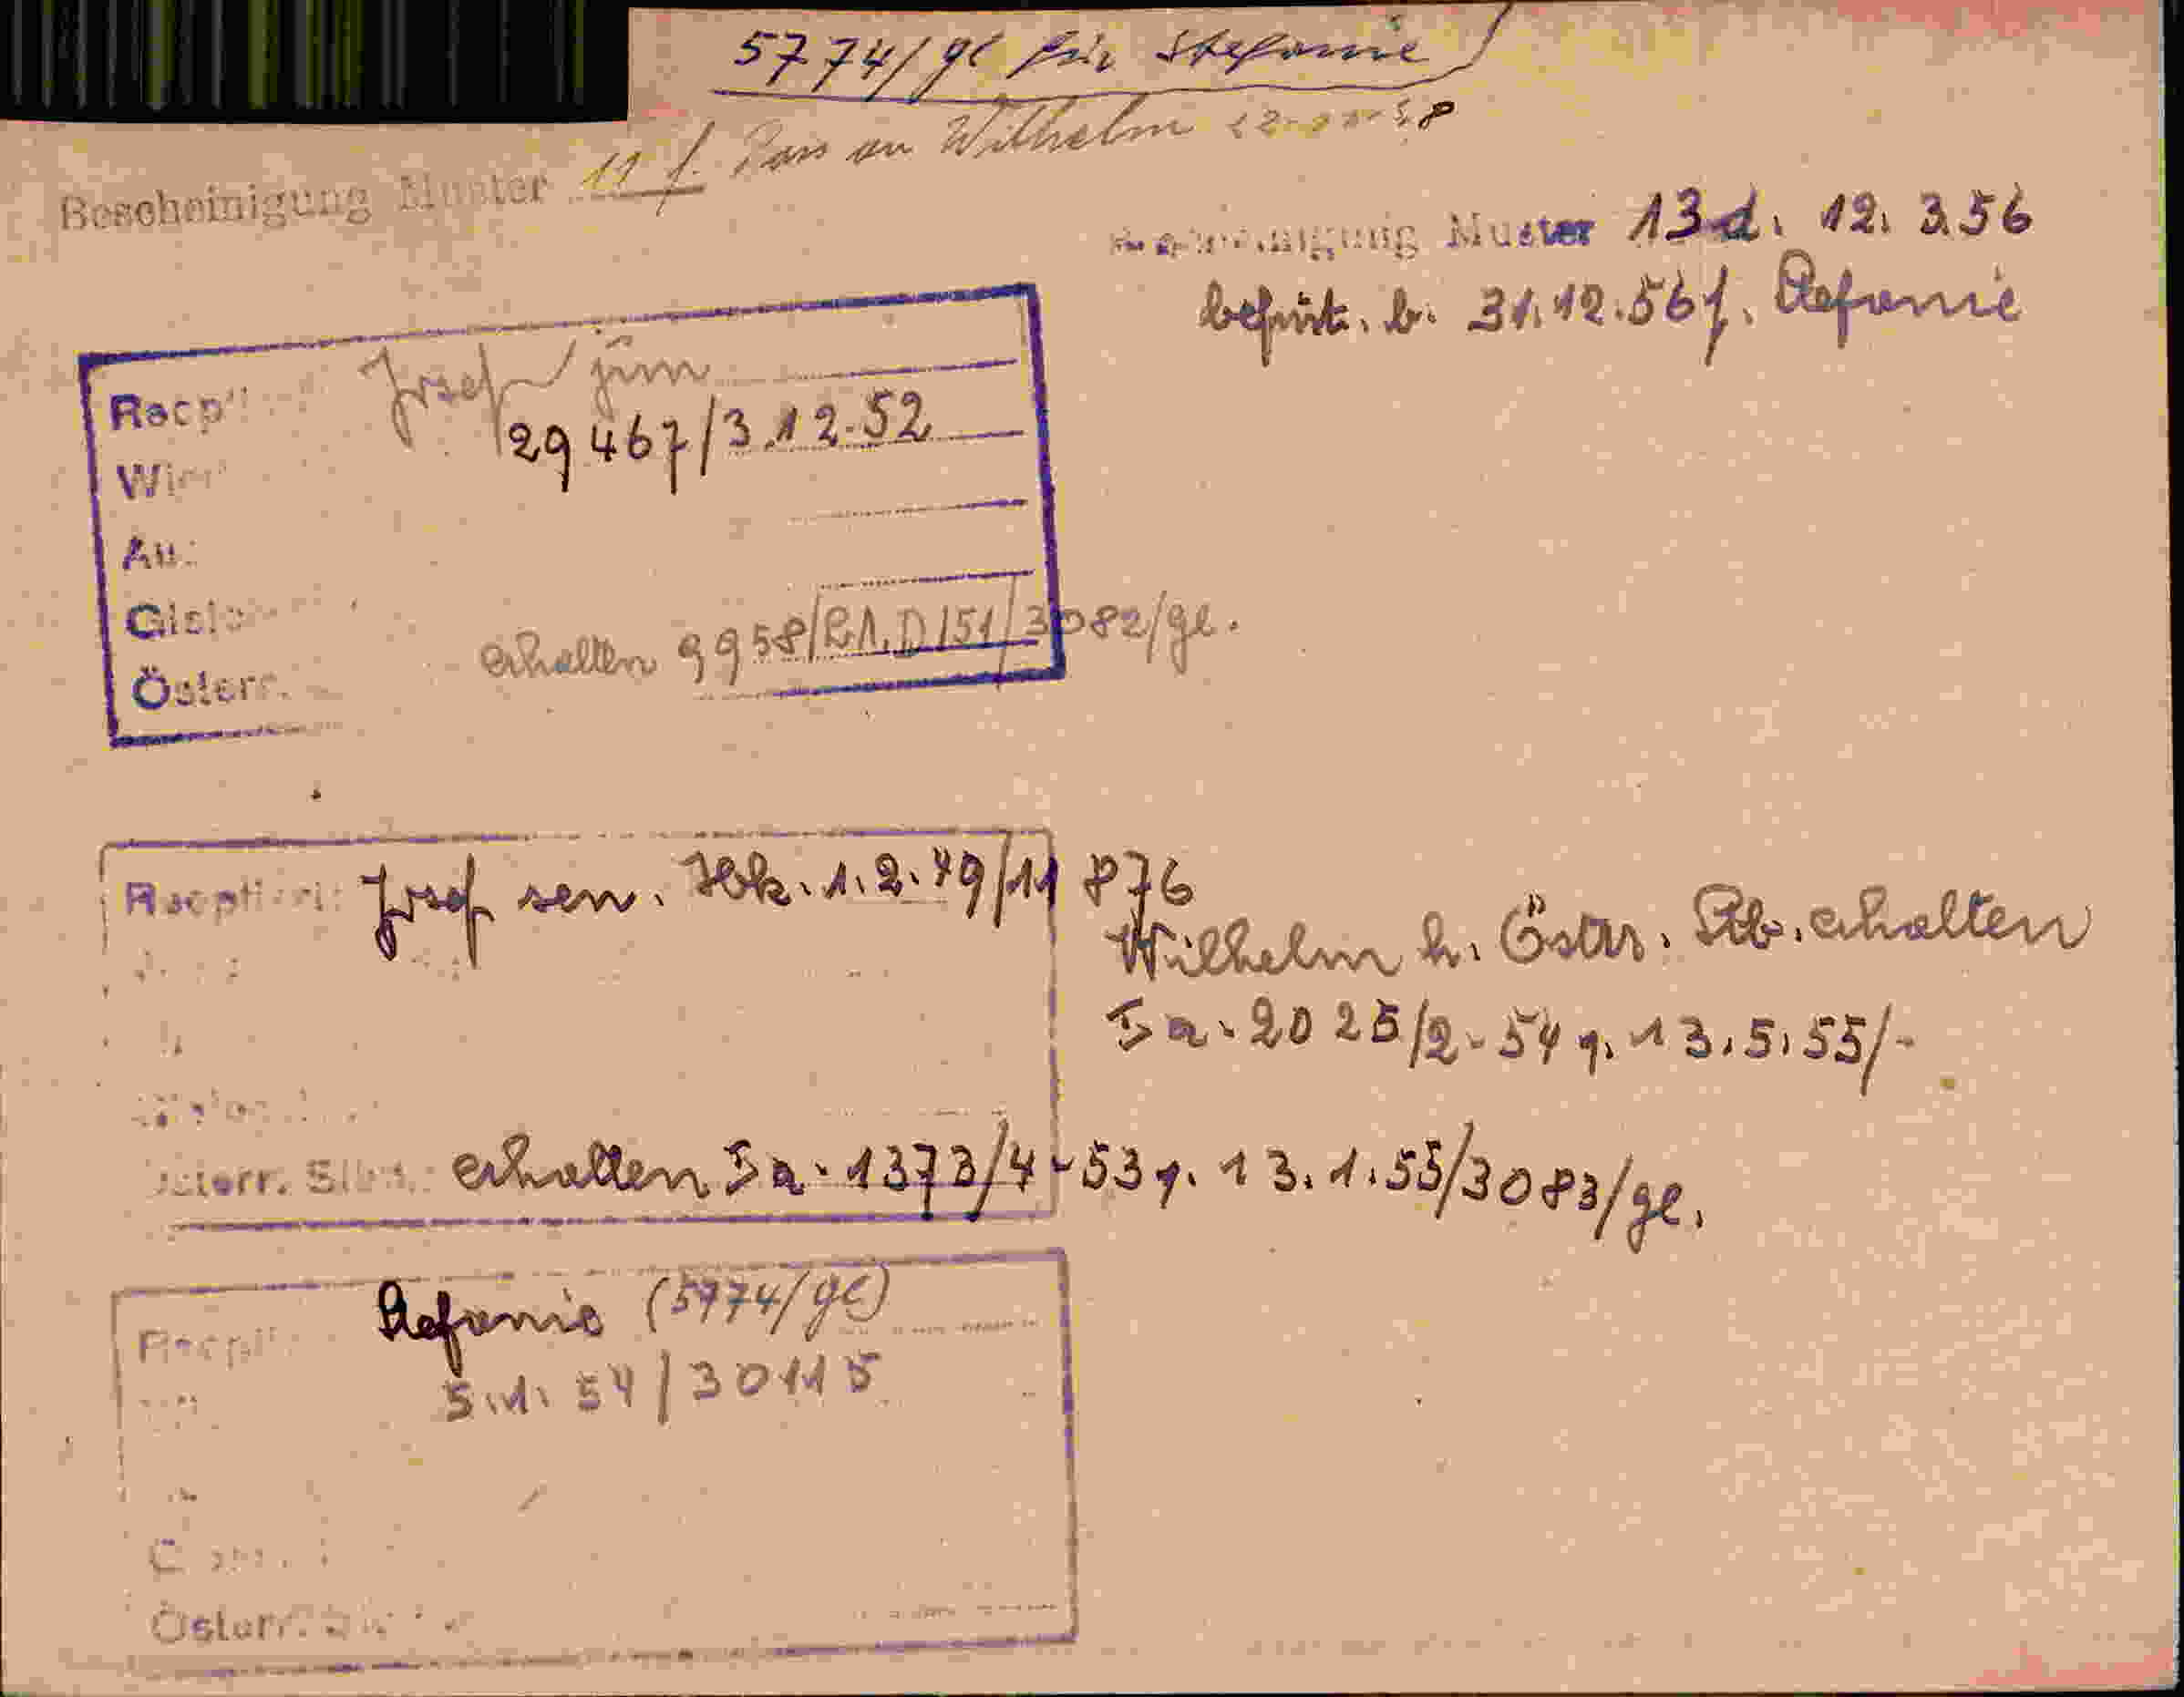 5774/gl für Stefanie
Bescheinigung Muster 11 f. Pass an Wilhelm
Muster 13d. 12. 3.56
befrist. b. 31.12.56 f. Stefanie
Josef jun
29467/3.12.52
Österr.
erhalten 9958/R.A.D/51/3082/gl.
Josef sen. Hbk. 1.2.49/11876
Wilhelm h. Östr. Stb. erhalten
Ia-2025/2-54 v. 13.5.55/-
Österr. Stb.: erhalten Ia-1373/4-53 v. 13.1.55/3083/gl.
Stefanie (5774/gl)
5.1.54/30115
Österr.